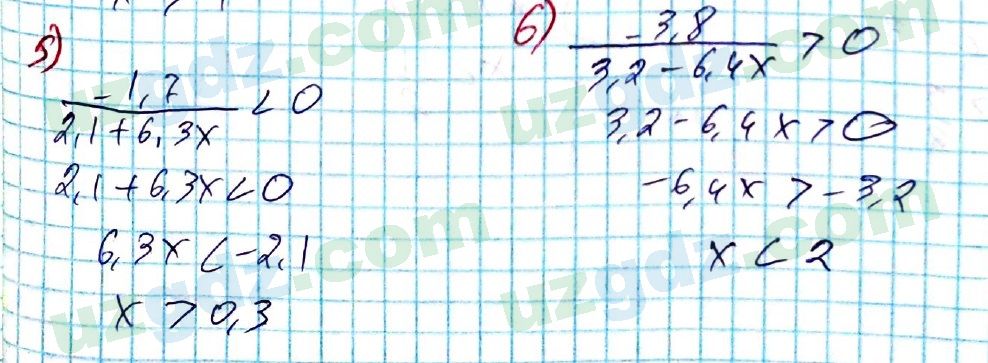 5)
-1,7 / 2,1+6,3x < 0
2,1+6,3x<0
6,3x < -2,1
x > 0,3
6)
-3,8 / 3,2-6,4x > 0
3,2-6,4x>0
-6,4x > -3,2
x < 2
uzgdz.com
uzgdz.com
uzgdz.com
uzgdz.com